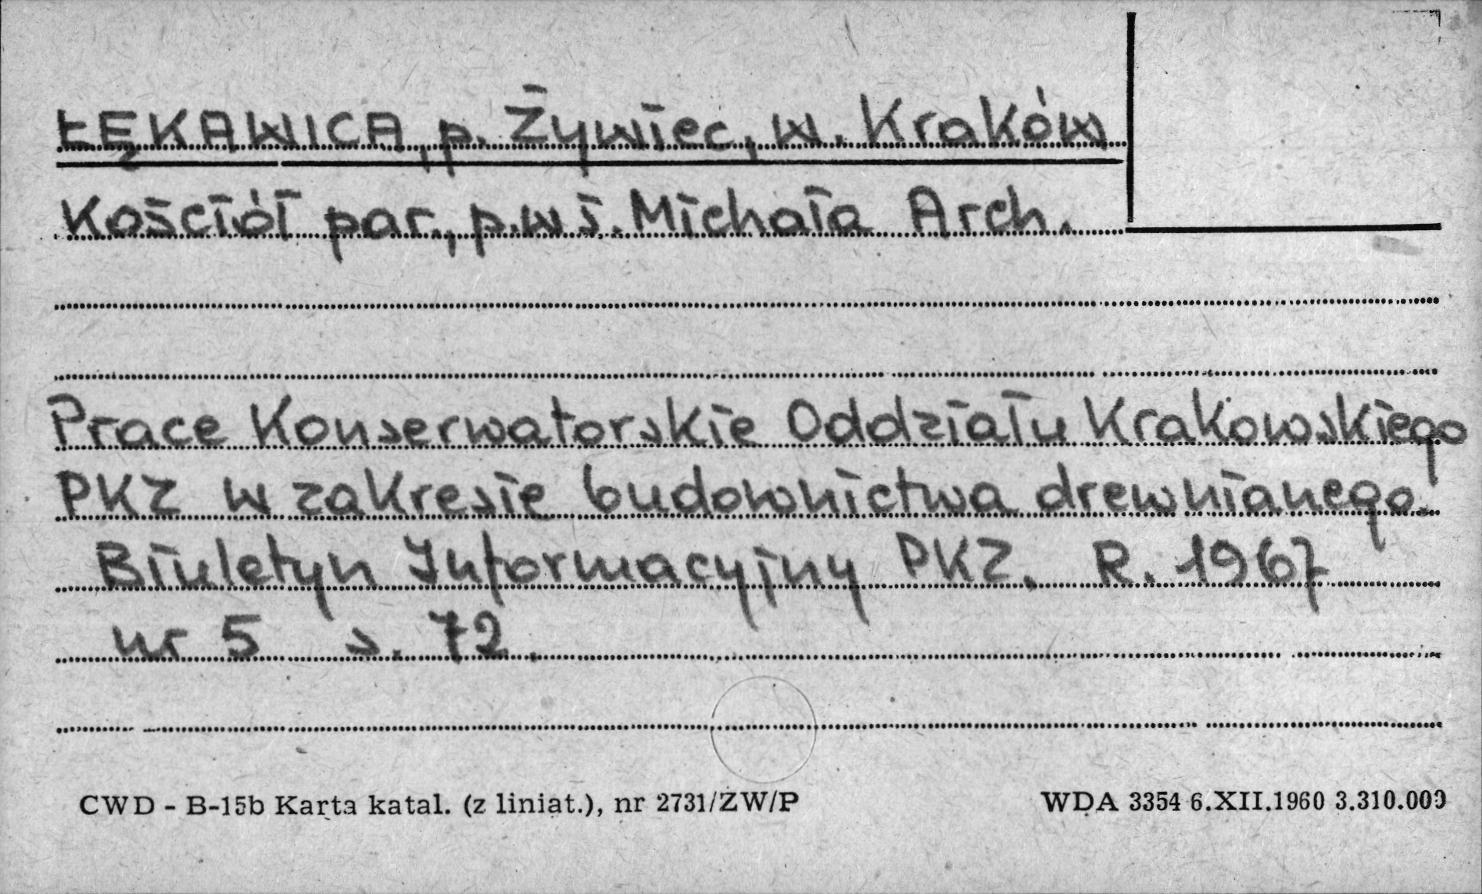 ŁĘKAWICA, p. Żywiec, w. Kraków
Kościół par., p.w ś. Michała Arch.
Prace Konserwatorskie Oddziału Krakowskiego
PKZ w zakresie budownictwa drewnianego.
Biuletyn Informacyjny PKZ. R. 1967
nr 5 s. 72.
CWD - B-15b Karta katal. (z liniat.), nr 2731/ZW/P
WDA 3354 6.XII.1960 3.310.000